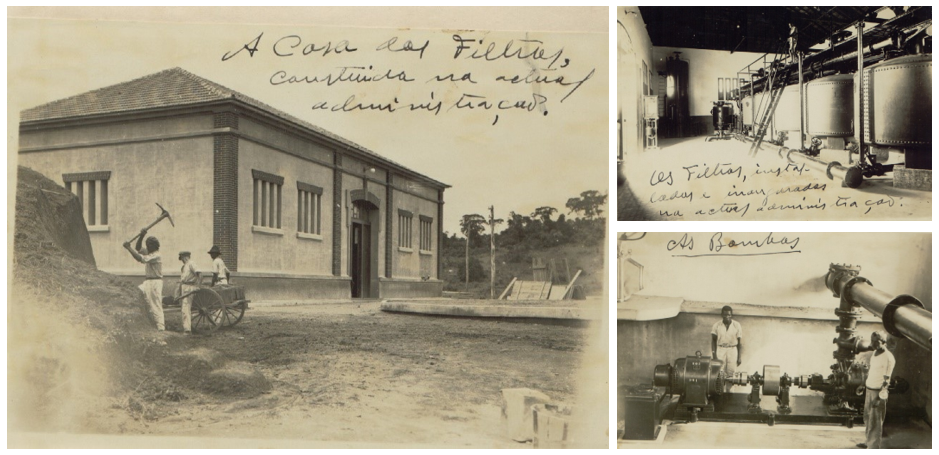 A Casa dos Filtros,
construida na actual
administração.
Os Filtros, instal-
lados e inaugurados
na actual administração.
As Bombas